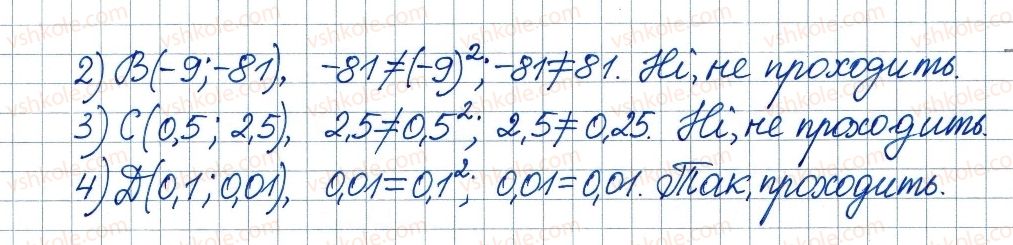 2) B(-9; -81), -81≠(-9)²; -81≠81. Ні, не проходить.
3) C(0,5; 2,5), 2,5≠0,5²; 2,5≠0,25. Ні, не проходить.
4) D(0,1; 0,01), 0,01=0,1²; 0,01=0,01. Так, проходить.